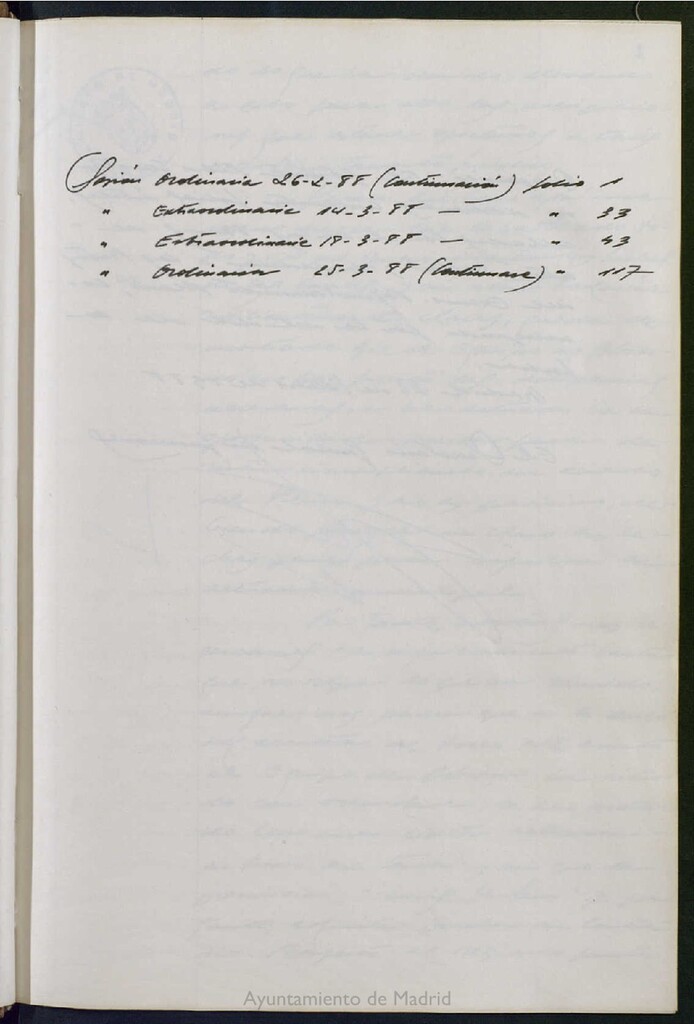 Sesión Ordinaria 26-2-88 (Continuación) folio 1
" Extraordinaria 14-3-88 — " 33
" Extraordinaria 18-3-88 — " 43
" Ordinaria 25-3-88 (Continuara) " 117
Ayuntamiento de Madrid